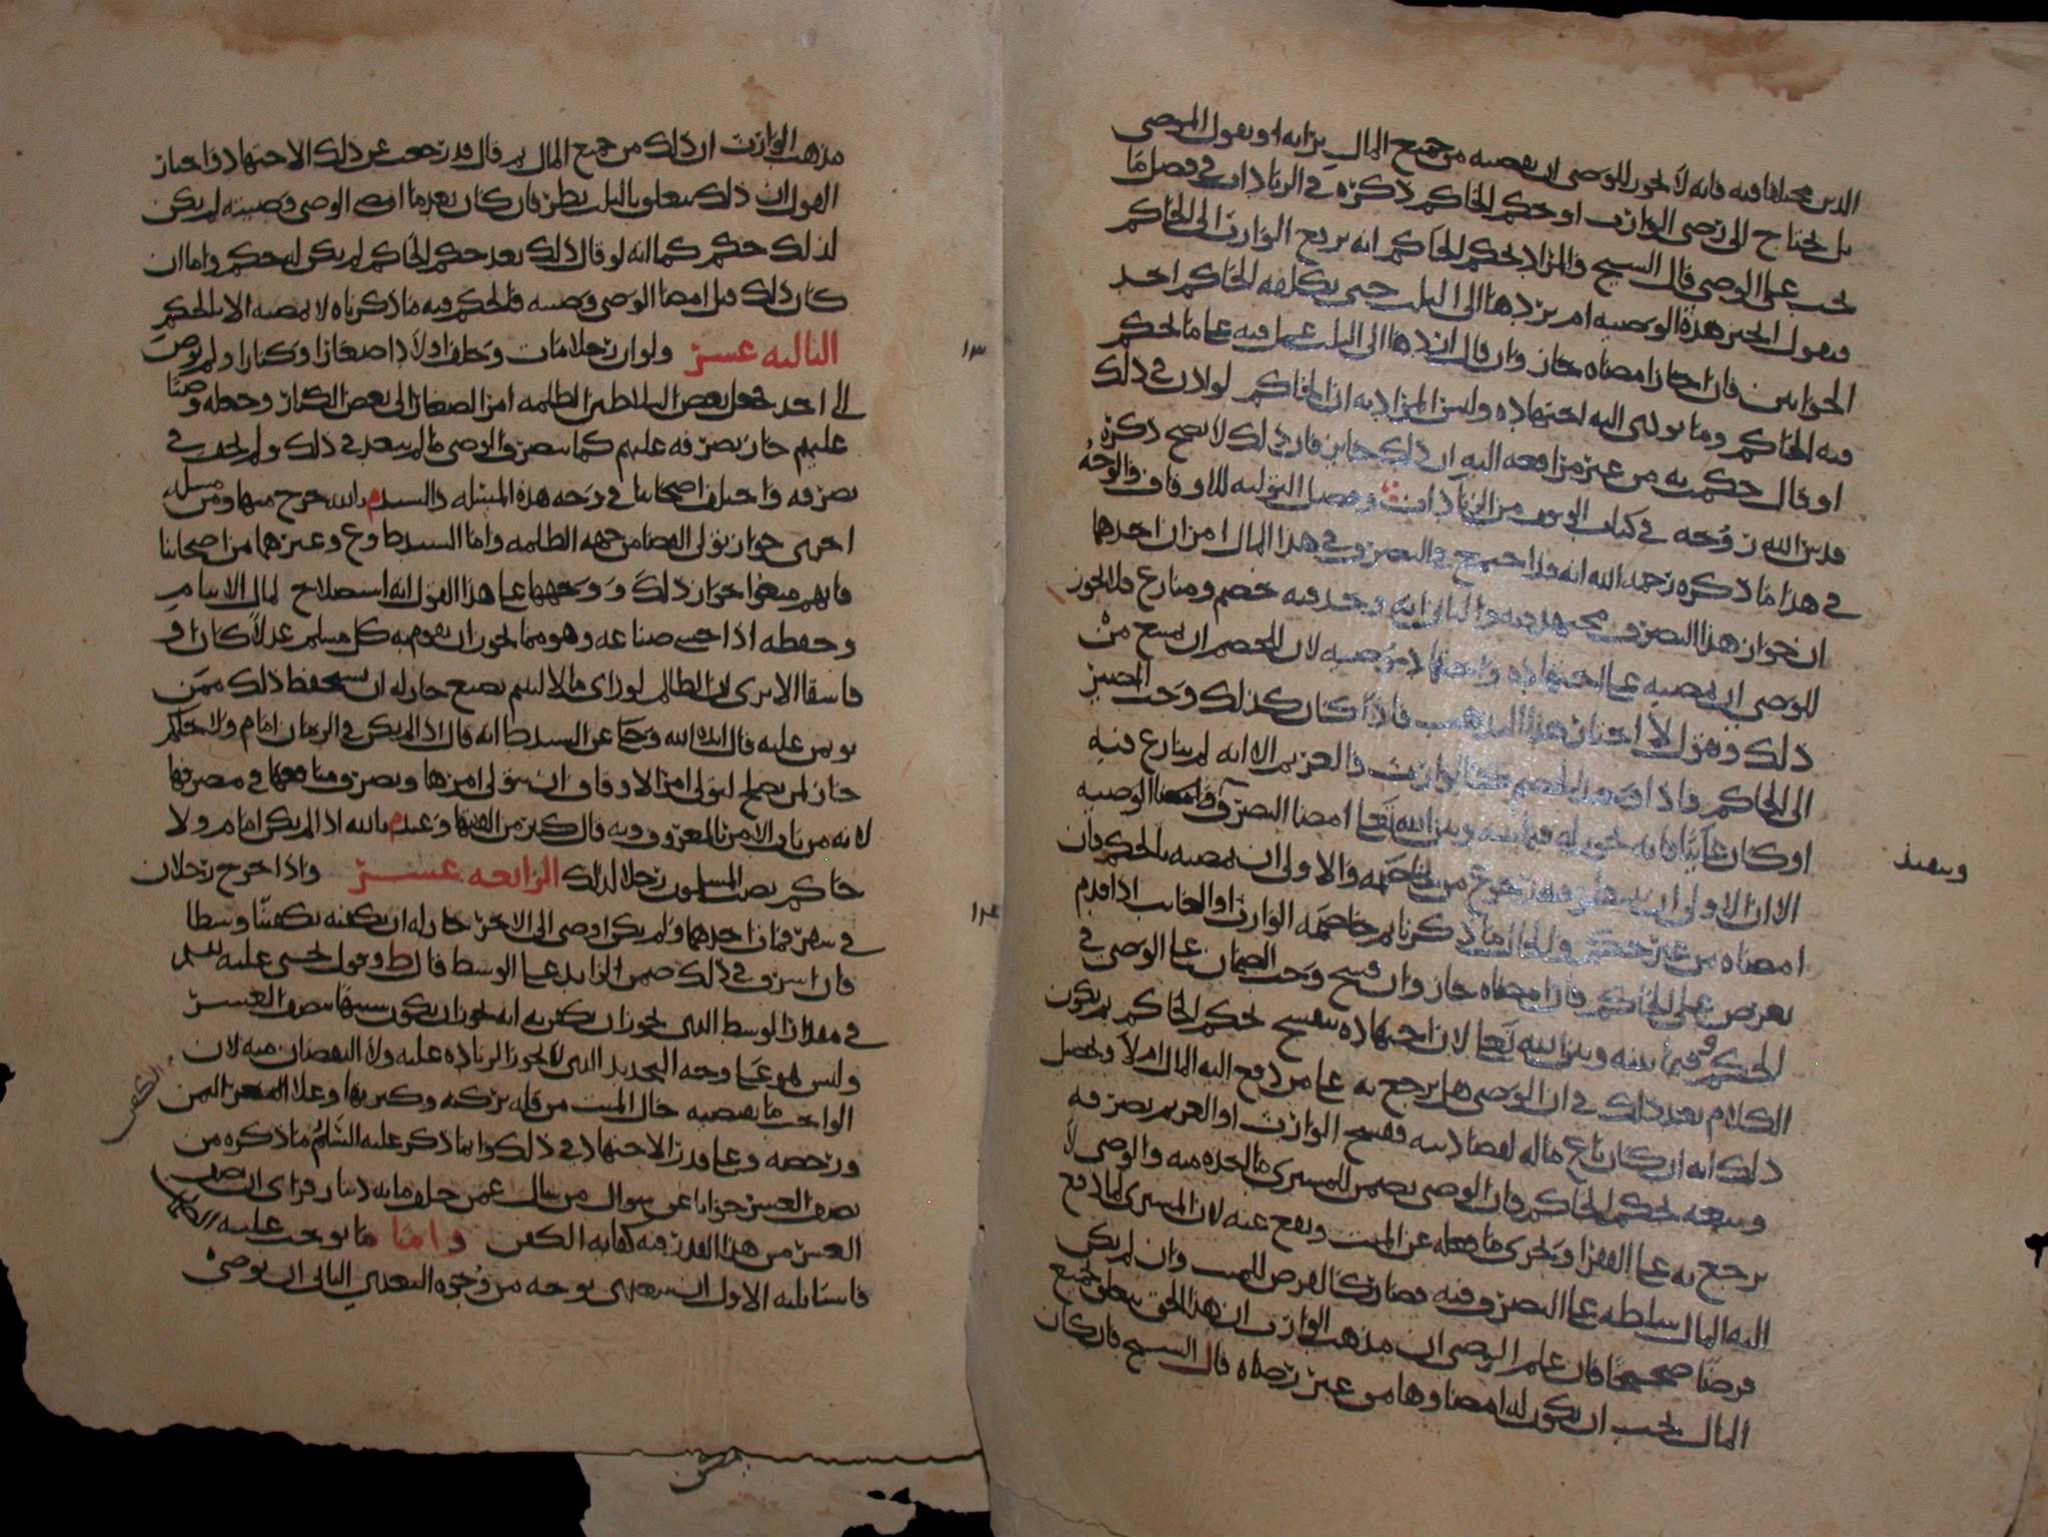 الدين مختلفا فيه فانه لا يجوز للوصي ان يقضيه من جميع المال برايه او يقول الموصي
بل يحتاج الى رضى الوارث او حكم الحاكم ذكره في الزيادات في فصل ما
يجب على الوصي قال الشيخ والمراد بحكم الحاكم انه يرفع الوارث الى الحاكم
فيقول اخبر هذه الوصية ام يردها الى الثلث حتى يكلفه الحاكم احد
الجوابين فان اجاز امضاه جاز وان قال اردها الى الثلث عمل فيه على ما يحكم
فيه الحاكم وما يودي اليه اجتهاده وليس المراد به ان الحاكم لو لان في ذلك
او قال حكمت به من غير مرافعه اليه ان ذلك جايز فان ذلك لا يصح ذكره
قدس الله روحه في كتاب الوقوف من الزيادات وفصل التوليه للاوقاف والوجه
في هذا ما ذكره رحمه الله انه قد اجتمع والتصرف في هذا المال امران احدهما
ان جواز هذا التصرف مجتهد فيه والثاني انه وجد فيه خصم ومنازع فلا يجوز
للوصي ان يمضيه على اجتهاده وامضاه لان للخصم ان يمنع من
ذلك ويقول لا اختار هذا المذهب فاذا كان كذلك وجب المصير
الى الحاكم واذا وجد الخصم كالوارث والغريم الا انه لم ينازع فيه
او كان غايبا فانه يجوز له فيما بينه وبين الله تعالى امضا التصرف وامضا الوصيه
الا ان الاولى ان من والاولى ان يمضيه بالحكم فان
امضاه من غير حكم والحال ما ذكرنا ثم خاصمه الوارث او الغايب اذا قدم
يعرض على الحاكم فان امضاه جاز وان فسخ وجب الضمان على الوصي في
الحكم فيما بينه وبين الله تعالى لان اجتهاده ينفسخ بحكم الحاكم ثم يكون
الكلام بعد ذلك في ان الوصي هل يرجع به على من دفع اليه المال ام لا وتحصيل
ذلك انه ان كان باع ماله لقضا دينه ففسخ الوارث او الغريم تصرفه
وبيعه بحكم الحاكم فان الوصي يضمن للمشتري ما اخذه منه والوصي لا
يرجع به على الفقرا ويجري ما فعله عن الميت ويقع عنه لان المشتري لما دفع
اليه المال سلطه على التصرف فيه فصار كالقرض للميت وان لم يكن
قرضا صحيحا فان علم الوصي ان مذهب الوارث ان هذا الحق يتعلق بجميع
المال يجب ان يكون له امضاوها من غير رضاه قال الشيخ فان كان
وينفذ
مذهب الوارث ان ذلك من جميع المال ثم قال قد رجعت عن ذلك الاجتهاد واختار
القول ان ذلك يتعلق بالثلث نظر فان كان بعد ما امضى الوصي وصيته لم يكن
لذلك حكم كما انه لو قال ذلك بعد حكم الحاكم لم يكن له حكم واما ان
كان ذلك قبل امضا الوصي وصيته فالحكم فيه ما ذكرناه لا يمضيه الا بالحكم
الثالثه عشر ولو ان رجلا مات وخلف اولادا صغارا وكبارا ولم يوص
الى احد فجعل بعض السلاطين الظلمه امر الصغار الى بعض الكبار وجعله وصيا
عليهم جاز تصرفه عليهم كما يتصرف الوصي ما لم يتعد في ذلك ولم يحف في
تصرفه واختلف اصحابنا في وجه هذه المسئله والسيد م بالله خرج منها ومن مسئله
اخرى جواز تولي القضا من جهه الظلمه واما السيد ط وع وغيرهما من اصحابنا
فانهم منعوا جواز ذلك ووجهها على هذا القول انه استصلاح لمال الايتام
وحفظه اذا خشي ضياعه وهو مما يجوز ان يقوم به كل مسلم عدلا كان او
فاسقا الا ترى ان الظالم لو راى مالا ليتيم يضيع جاز له ان يستحفظ ذلك ممن
يومن عليه قال ايده الله وحكى عن السيد ط انه قال اذا لم يكن في الزمان امام ولا حاكم
جاز لمن يصلح لتولي امر الاوقاف ان يتولى امرها ويصرف منافعها في مصرفها
لانه من باب الامر بالمعروف وبه قال كثير من الفقها وعند م بالله اذا لم يكن امام ولا
حاكم نصب المسلمون رجلا لذلك الرابعه عشر واذا خرج رجلان
في سفر فمات احدهما ولم يكن اوصى الى الاخر جاز له ان يكفنه تكفينا وسطا
فان اسرف في ذلك ضمن الزايد على الوسط قال ط وقول يحيى عليه السلم
في مقدار الوسط الذي يجوز ان يكفن به انه يجوز ان يكون سبيلها نصف العشر
وليس هو على وجه التحديد الذي لا يجوز الزياده عليه ولا النقصان منه لان
الواجب ما يقتضيه حال الميت من قله تركته وكثرتها وغلا السعر الثمن
ورخصه وعلى قدر الاجتهاد في ذلك وانما ذكر عليه السلم ما ذكره من
نصف العشر جوابا عن سوال من سال عمن خلف مايه دينار فراى ان نصف
العشر من هذا القدر فيه كفايه الكفن واما ما يوجب عليه الضمان
فاشيا ثلثه الاول ان يتعدى بوجه من وجوه التعدي الثاني ان يوصي
١٣
١٤